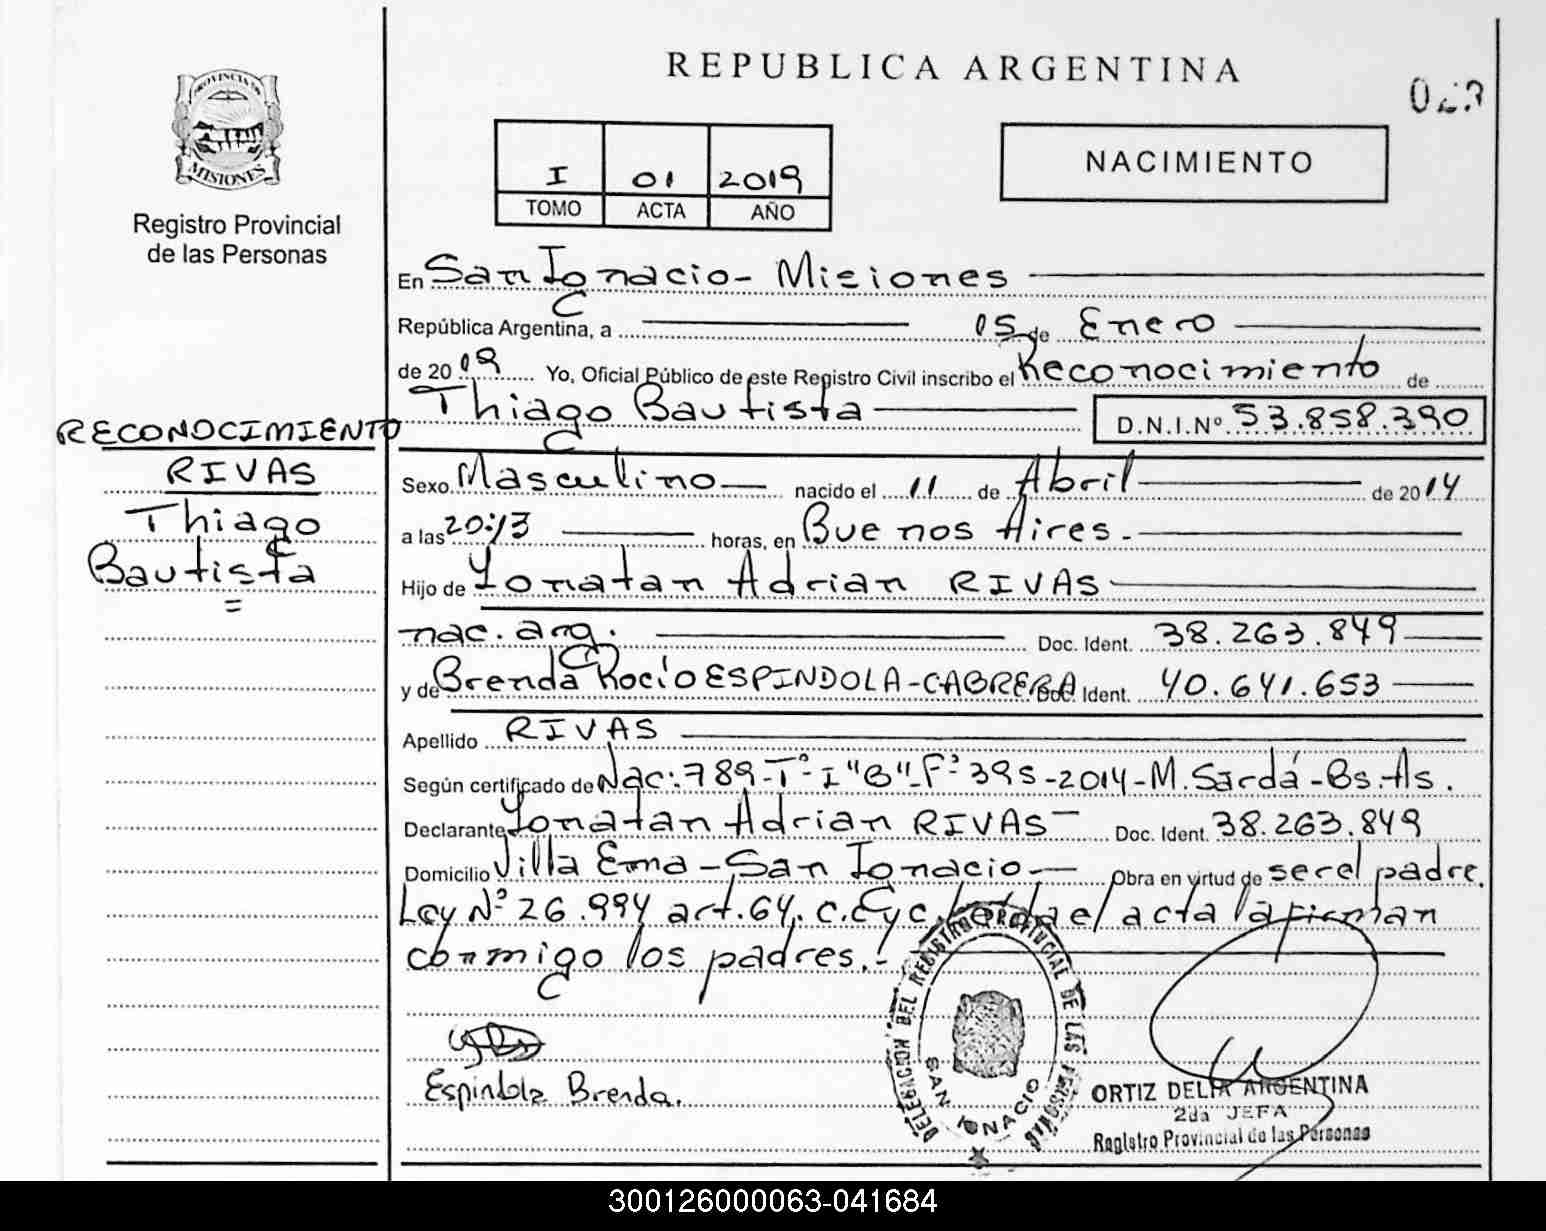 REPUBLICA ARGENTINA
PROVINCIA DE
MISIONES
Registro Provincial
de las Personas
I 01 2019
TOMO ACTA AÑO
NACIMIENTO
En San Ignacio - Misiones
República Argentina, a 15 de Enero
de 2019 Yo, Oficial Público de este Registro Civil inscribo el Reconocimiento de
Thiago Bautista D.N.I.Nº 53.858.390
RECONOCIMIENTO
RIVAS
Thiago
Bautista
Sexo Masculino nacido el 11 de Abril de 2014
a las 20:13 horas, en Buenos Aires.-
Hijo de Yonatan Adrian RIVAS
nac. arg. Doc. Ident. 38.263.849
y de Brenda Rocío ESPINDOLA-CABRERA Doc. Ident. 40.641.653
Apellido RIVAS
Según certificado de Nac: 789-Tº-I"B"-Fº395-2014-M. Sardá-Bs.As.
Declarante Yonatan Adrian RIVAS Doc. Ident. 38.263.849
Domicilio Villa Ema - San Ignacio Obra en virtud de ser el padre.
Ley Nº 26.994 art. 64. C.C y C. el acta la firman
conmigo los padres.-
Espindola Brenda.
DELEGACION DEL REGISTRO PROVINCIAL DE LAS PERSONAS
SAN IGNACIO
ORTIZ DELIA ARGENTINA
2da JEFA
Registro Provincial de las Personas
300126000063-041684